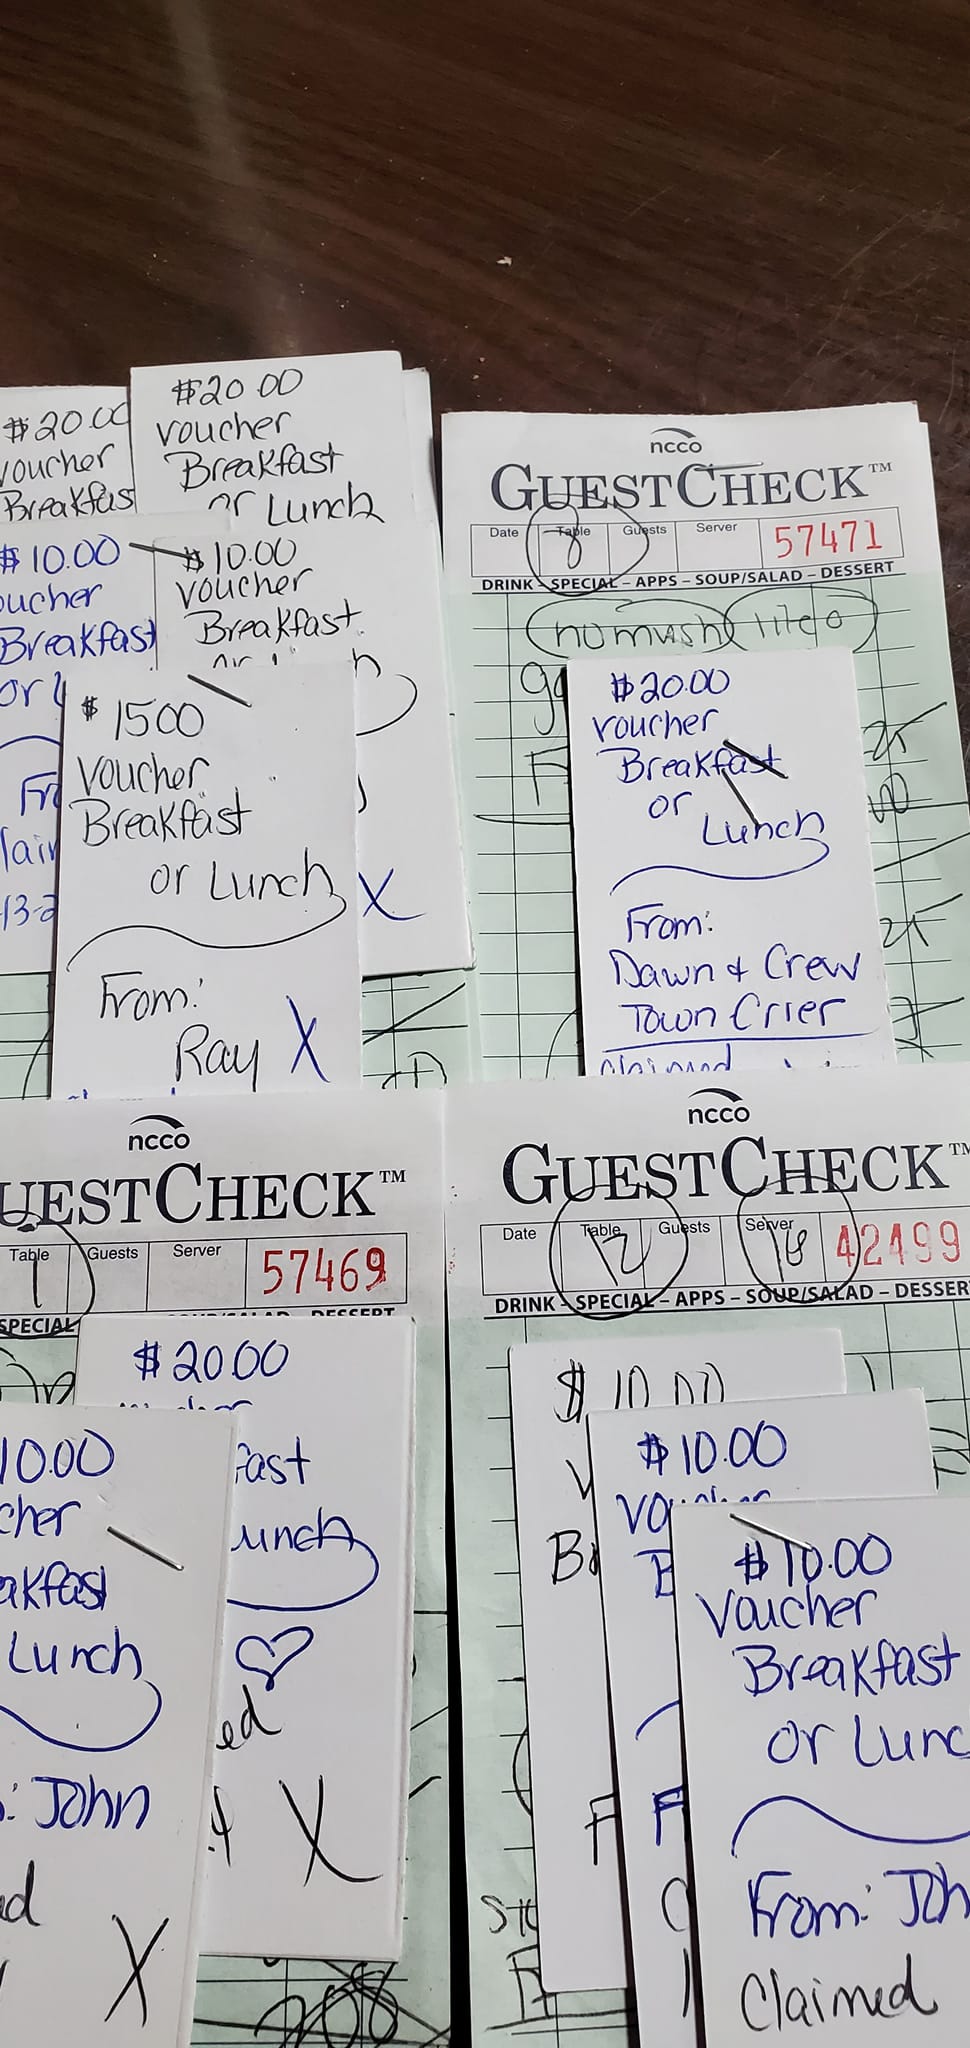 $20.00
voucher
Breakfast
$20.00
voucher
Breakfast
or Lunch
$10.00
Breakfast
or
$10.00
voucher
Breakfast
$1500
Voucher
Breakfast
or Lunch
From:
Ray X
X
ncco
GUESTCHECK™
Date Table Guests Server 57471
8
DRINK – SPECIAL – APPS – SOUP/SALAD – DESSERT
no mush
$20.00
voucher
Breakfast
or
Lunch
From:
Dawn & Crew
Town Crier
claimed
ncco
UESTCHECK™
Table Guests Server 57469
1
SPECIAL
DESSERT
$2000
fast
unch
ed
X
10.00
cher
akfast
Lunch
: John
ed
X
208
ncco
GUESTCHECK™
Date Table Guests Server 42499
12 18
DRINK – SPECIAL – APPS – SOUP/SALAD – DESSER
$10.00
$10.00
$10.00
Voucher
Breakfast
or Lunc
From: Joh
Claimed